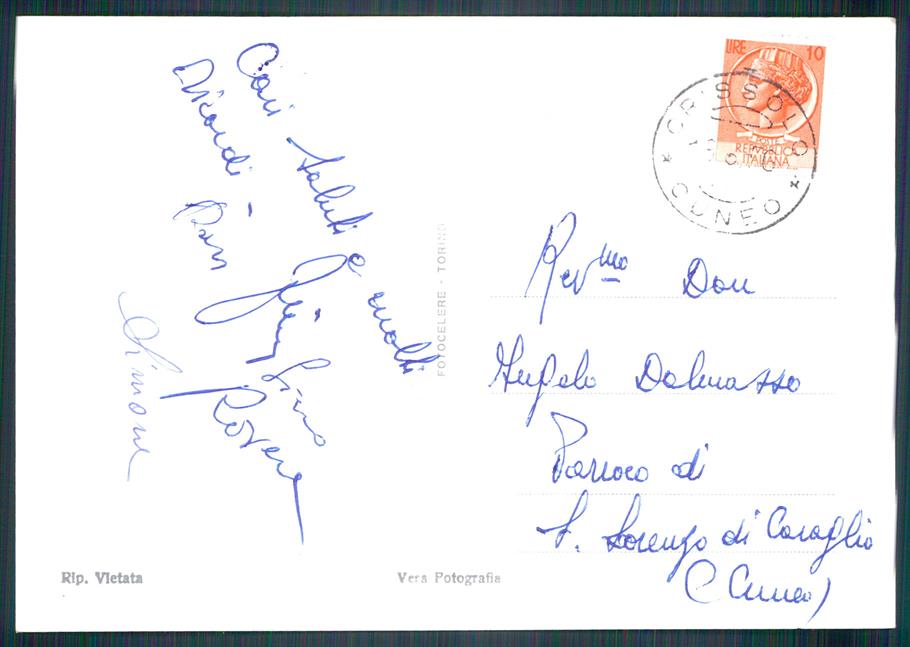 Cari saluti e molti
ricordi -
Don
Rovera
Simone
LIRE 10
POSTE
REPVBBLICA
ITALIANA
CRISSOLO
* CUNEO *
Revmo Don
Angelo Dalmasso
Parroco di
S. Lorenzo di Caraglio
(Cuneo)
FOTOCELERE - TORINO
Rip. Vietata
Vera Fotografia